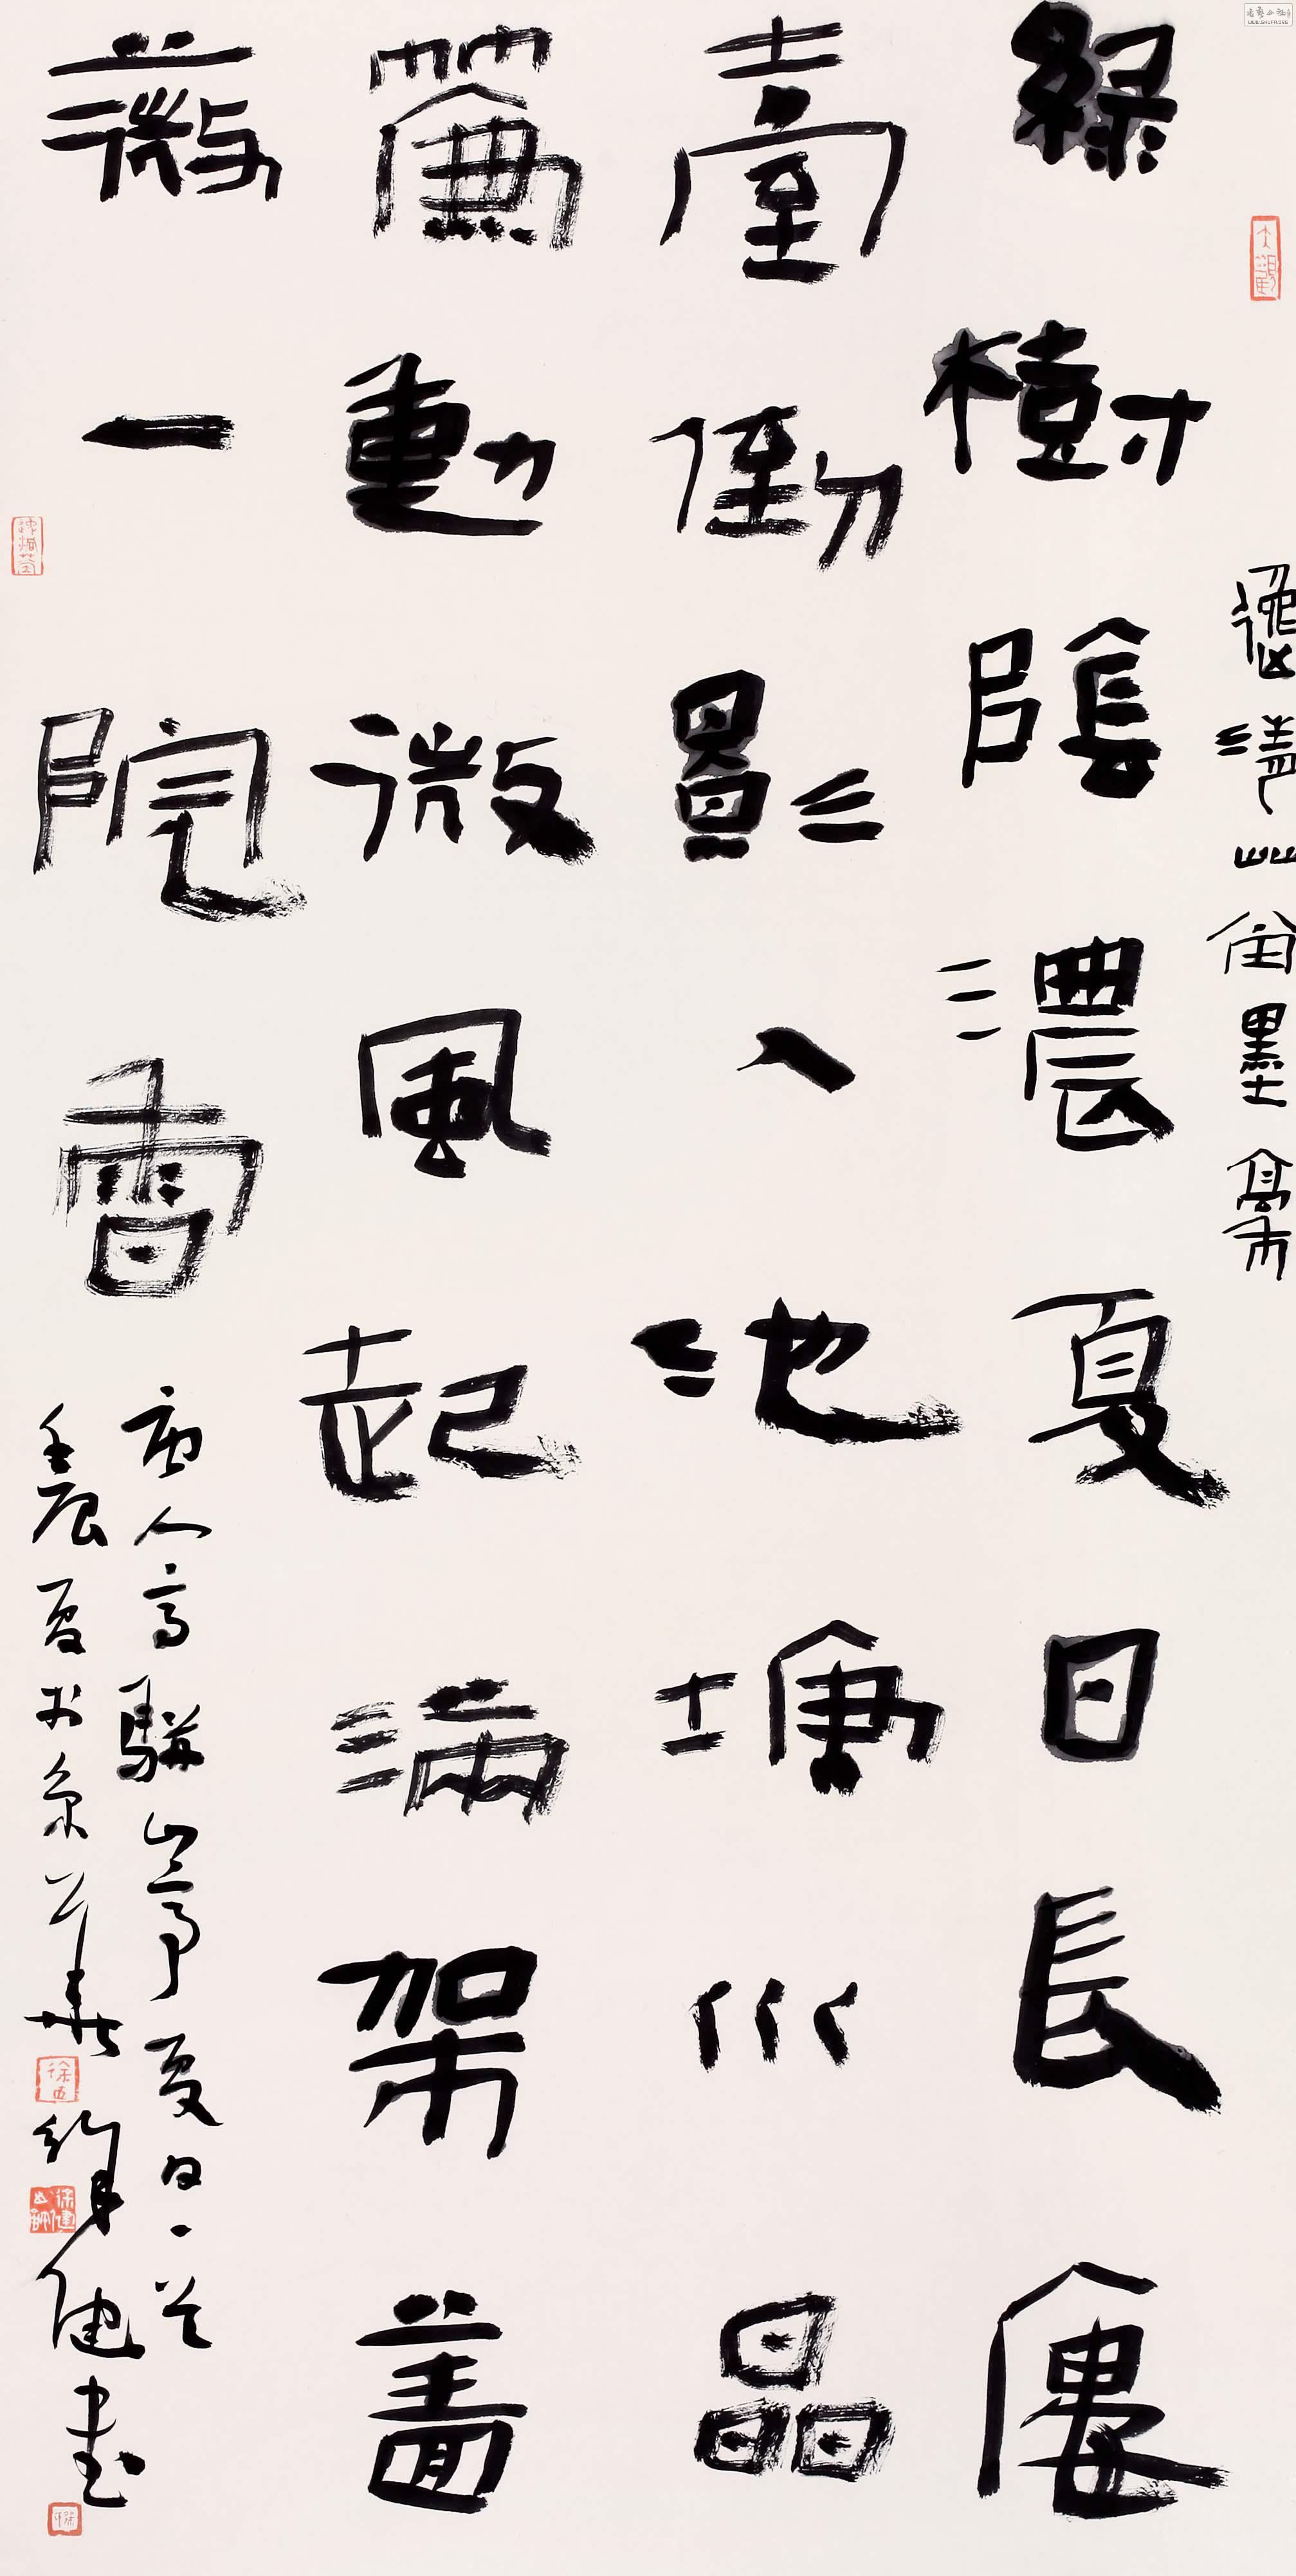 WWW.SHUFA.ORG
清 墨
綠樹陰濃夏日長樓
臺倒影入池塘水晶
簾動微風起滿架薔
薇一院香
唐人高駢山亭夏日一首
壬辰夏於京華徐健書